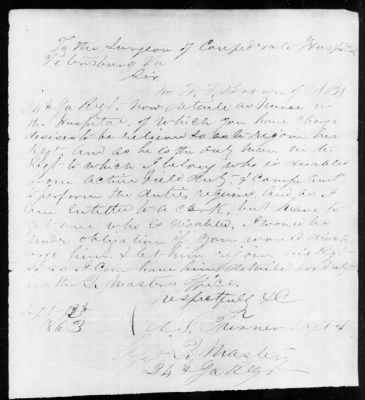 To the Surgeon of Confederate Hospital
Petersburg Va
Sir
Mr
24th Ga Regt now detailed as nurse in
the Hospital, of which you have charge
desires to be relieved so as to rejoin his
Regt, and as he is the only man in the
Regt to which I belong who is disabled
from active field duty & competent
to perform the duties required, and as I
am entitled to a clerk, but have to
get one who is disabled, I would be
under obligation if you would disch
arge him & let him rejoin his Regt
so as I can have him detailed for duty
in the Q. Masters office.
respectfully &C
Sept 12th
1863
Capt &
Q. Master
24th Ga Regt